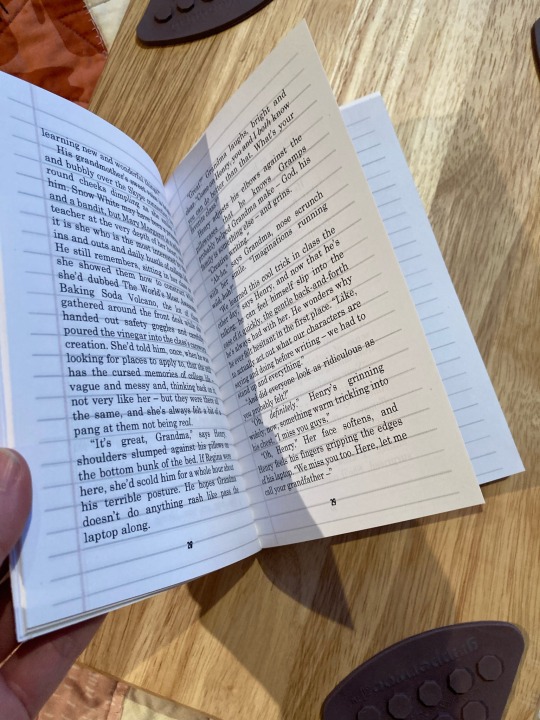 learning new and wonderful things
His grandmother's
and bubbly over the Skype
round cheeks dimpling as she
him. Snow White may have been
and a bandit, but Mary Margaret
teacher at the very depth of her
it is she who is the most interested
ins and outs and daily bustle of college
He still remembers, sitting in her
she showed them how to construct what
she'd dubbed The World's Most
Baking Soda Volcano, the lot of
gathered around the front
handed out safety goggles and
poured the vinegar into the class's
creation. She'd told him, once, when he was
looking for places to apply to, that she still
has the cursed memories of college, all
vague and messy and, thinking back on it,
not very like her – but they were there all
the same, and she's always felt a bit of a
pang at them not being real.
"It's great, Grandma," says Henry,
shoulders slumped against his pillows on
the bottom bunk of the bed. If Regina were
here, she'd scold him for a whole hour about
his terrible posture. He hopes Grandma
doesn't do anything rash like pass the
laptop along.
Grandma laughs, bright and
Henry, you and I both know
better than that. What's your
his elbows against the
that he knows Gramps
and Grandma make – God, his
else – and grins.
says Grandma, nose scrunch
"Imaginations running
learned this cool trick in class the
says Henry, and now that he's
can feel himself slip into the
quickly, the gentle back-and-forth
he's always had with her. He wonders why
he ever felt hesitant in the first place. "Like,
actually act out what our characters are
saying and doing before writing – we had to
stand up and everything."
did everyone look as ridiculous as
you probably felt?"
"Oh, definitely." Henry's grinning
widely, now, something warm trickling into
his chest. "I miss you guys."
"Oh, Henry." Her face softens, and
Henry feels his fingers gripping the edges
of his laptop. "We miss you too. Here, let me
call your grandfather –"